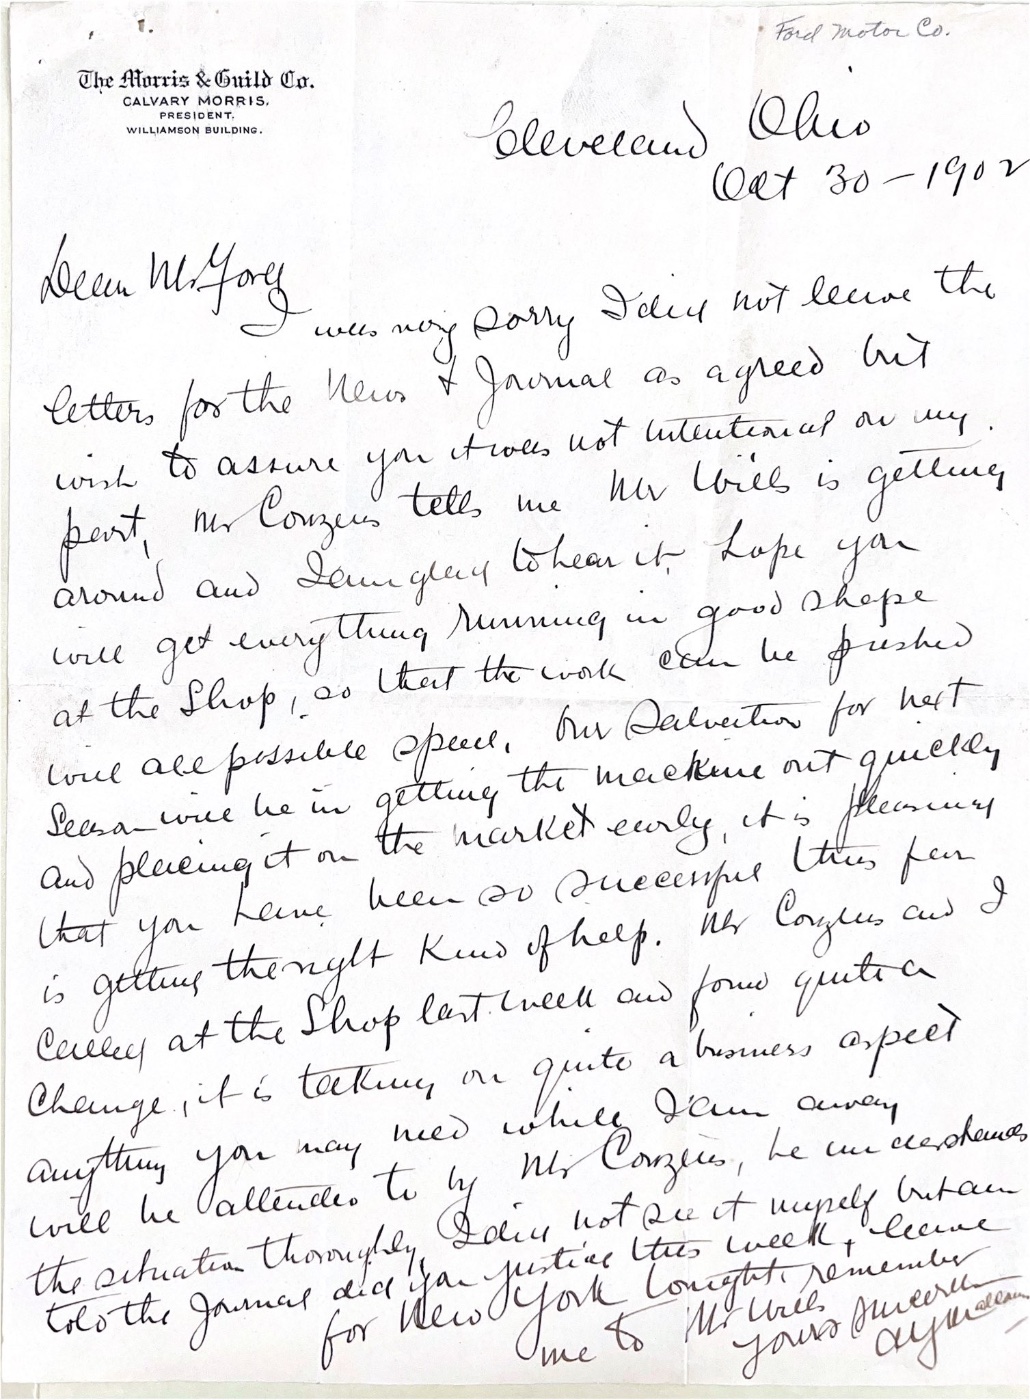 Ford Motor Co.
The Morris & Guild Co.
CALVARY MORRIS,
PRESIDENT,
WILLIAMSON BUILDING.
Cleveland Ohio
Oct 30 – 1902
Dear Mr Ford
I was very sorry I did not leave the
letters for the News & Journal as agreed but
wish to assure you it was not intentional on my
part, Mr Couzens tells me Mr Wills is getting
around and I am glad to hear it, hope you
will get everything running in good shape
at the Shop, so that the work can be pushed
will all possible speed. Our Salvation for next
Season will be in getting the machine out quickly
and placing it on the market early, it is pleasing
that you have been so successful thus far
is getting the right Kind of help. Mr Couzens and I
called at the Shop last week and found quite a
Change, it is taking on quite a business aspect
anything you may need while I am away
will be attended to by Mr Couzens, he understands
the situation thoroughly, I did not see it myself but am
told the Journal did you justice this week, leave
for New York tonight, remember
me to Mr Wills
Yours Sincerely